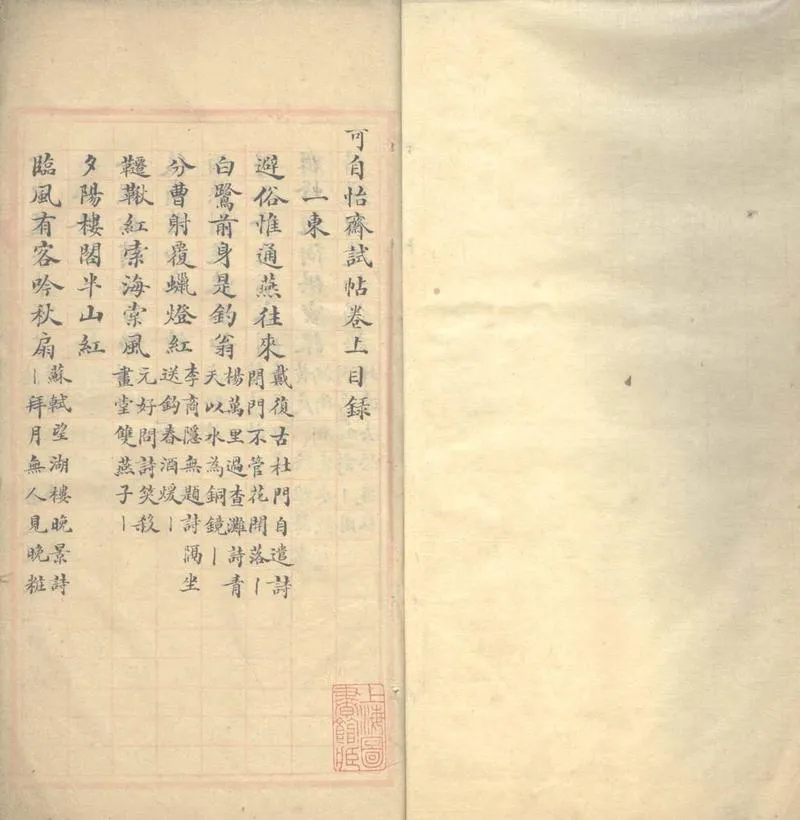 可自怡齋試帖卷上目錄
一東
避俗惟通燕往來
戴復古杜門自遣詩
閉門不管花開落丨
白鷺前身是釣翁
楊萬里過查灘詩青
天以水為銅鏡丨
分曹射覆蠟燈紅
李商隱無題詩隔坐
送鈎春酒煖丨
韆鞦紅索海棠風
元好問詩笑殺
畫堂雙燕子丨
夕陽樓閣半山紅
臨風有客吟秋扇
蘇軾望湖樓晚景詩
丨拜月無人見晚粧
上海圖
書館藏